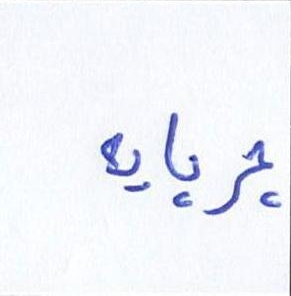 جربايه